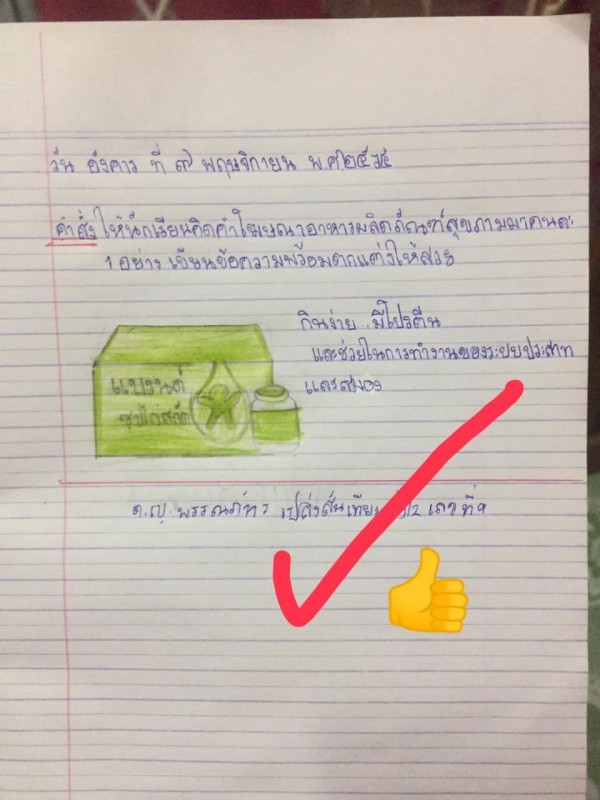 วัน อังคาร ที่ ๙ พฤษจิกายน พ.ศ๒๕๖๔
คำสั่ง ให้นักเรียนคิดคำโฆษณาอาหารผลิตภัณฑ์สุขภาพมาคนละ
1 อย่าง เขียนข้อความพร้อมตกแต่งให้สวย
กินง่าย มีโปรตีน
และช่วยในการทำงานของระบบประสาท
และสมอง
แบรนด์
ซุปไก่สกัด
ด.ญ. พรรณภัทร เปล่งสันเทียะ /2 เลขที่ 9